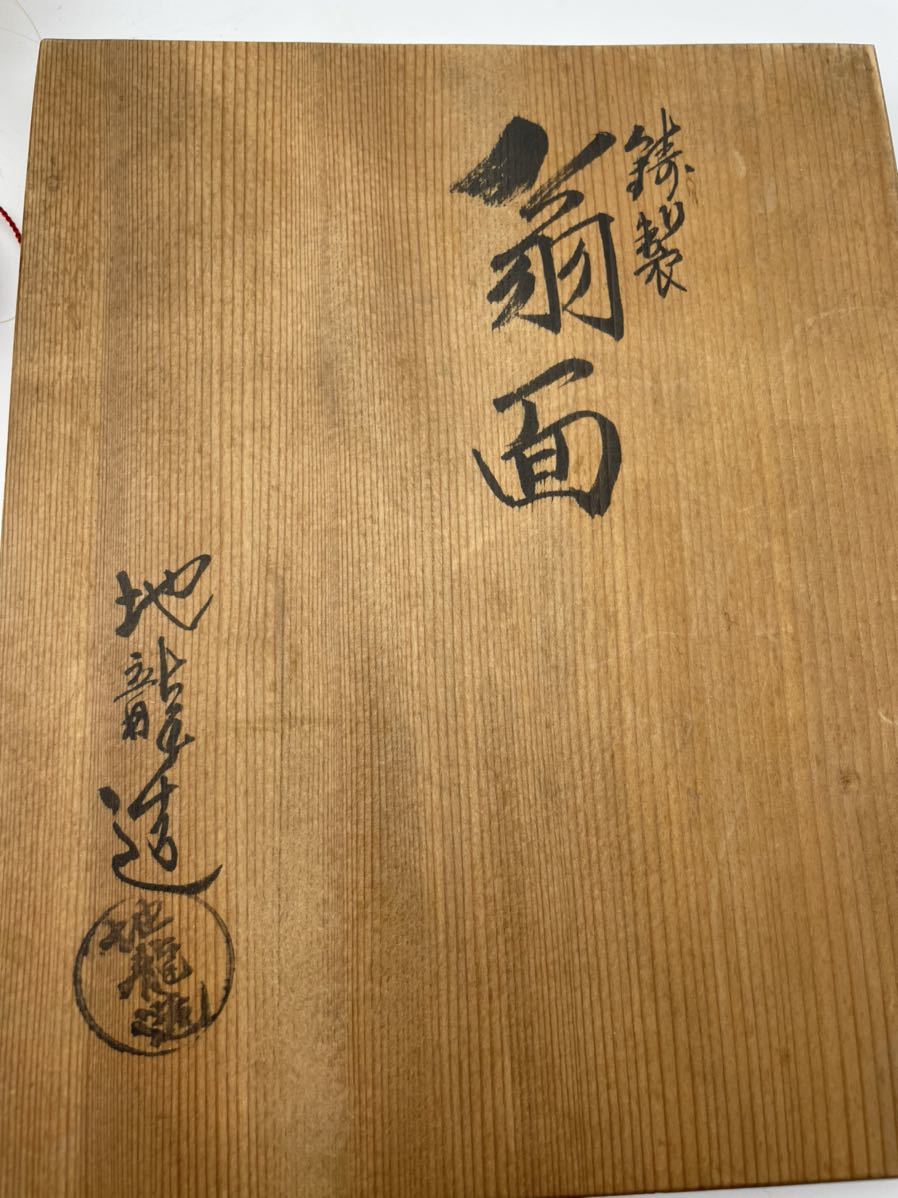 鋳製
翁面
地龍造
地龍造